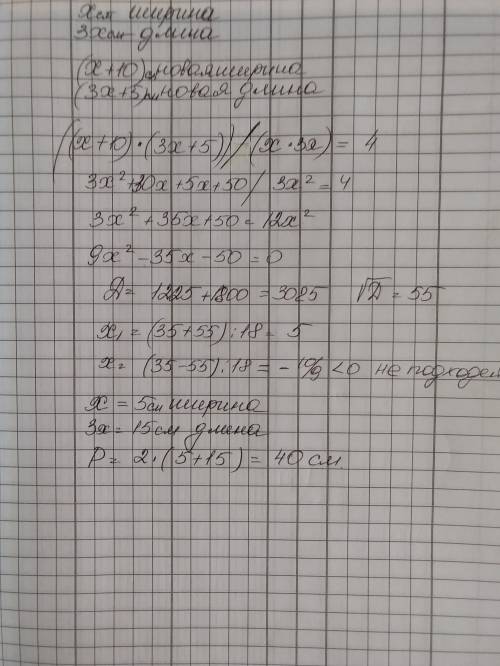 x см ширина
3x см длина
(x+10) см новая ширина
(3x+5) см новая длина
((x+10)·(3x+5))/(x·3x) = 4
3x²+30x+5x+50/3x²=4
3x²+35x+50=12x²
9x²-35x-50=0
D= 1225+1800=3025 √D=55
x₁=(35+55):18= 5
x= (35-55):18= -10/9 <0 не подходит
x = 5см ширина
3x= 15см длина
P= 2·(5+15)= 40 см